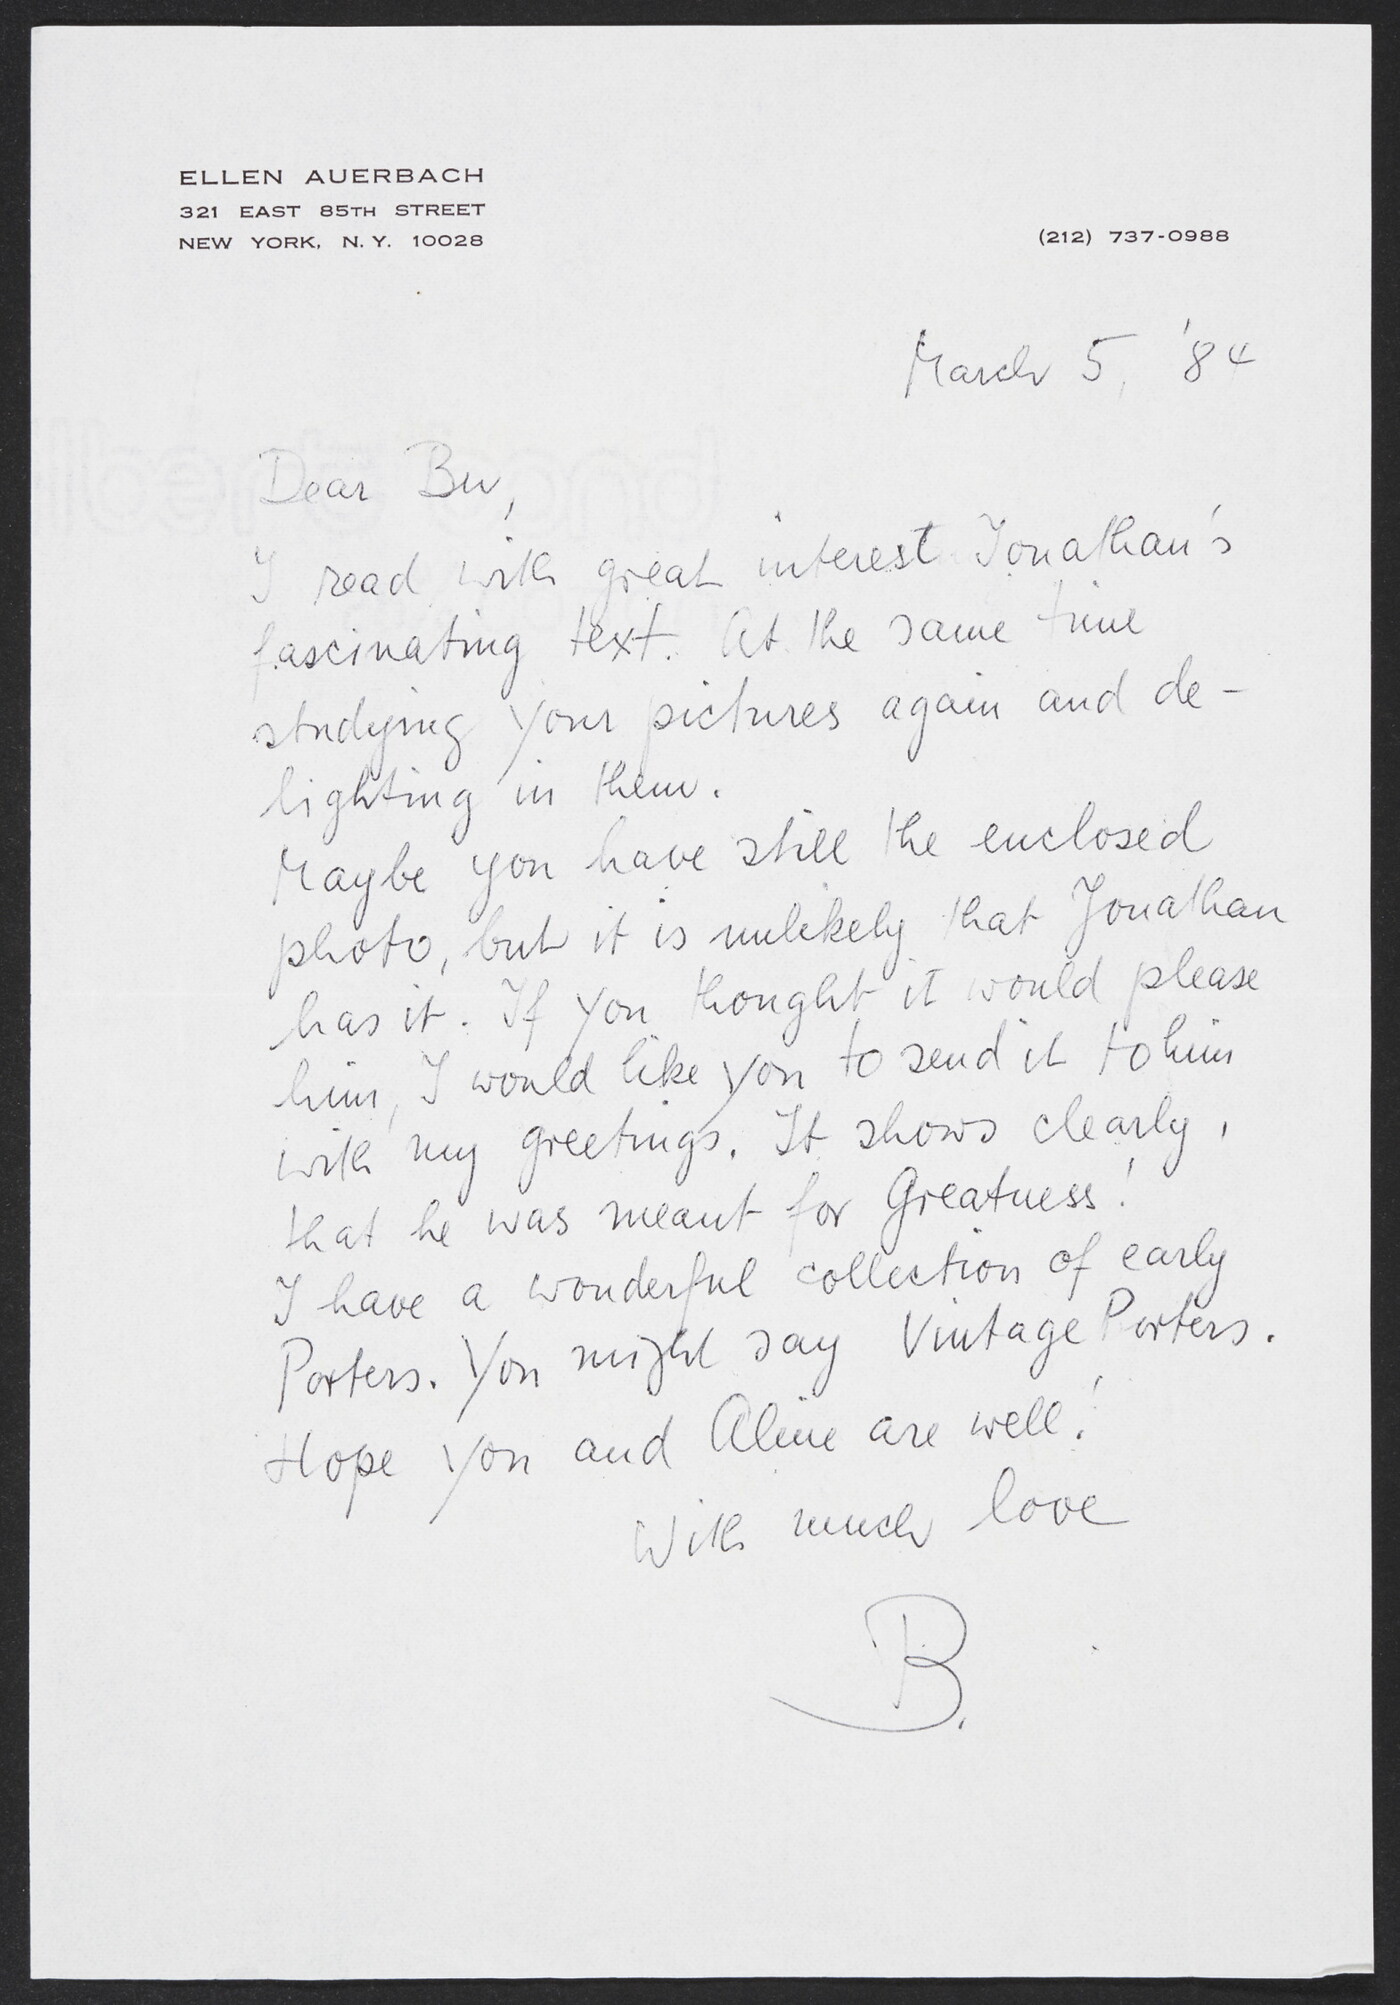 ELLEN AUERBACH
321 EAST 85TH STREET
NEW YORK, N.Y. 10028
(212) 737-0988
March 5, '84
Dear
I read with great interest Jonathan's
fascinating text. At the same time
studying your pictures again and de-
lighting in them.
Maybe you have still the enclosed
photo, but it is unlikely that Jonathan
has it. If you thought it would please
him, I would like you to send it to him
with my greetings. It shows clearly,
that he was meant for Greatness!
I have a wonderful collection of early
Porters. You might say Vintage Porters.
Hope you and Aline are well!
With much love
B.